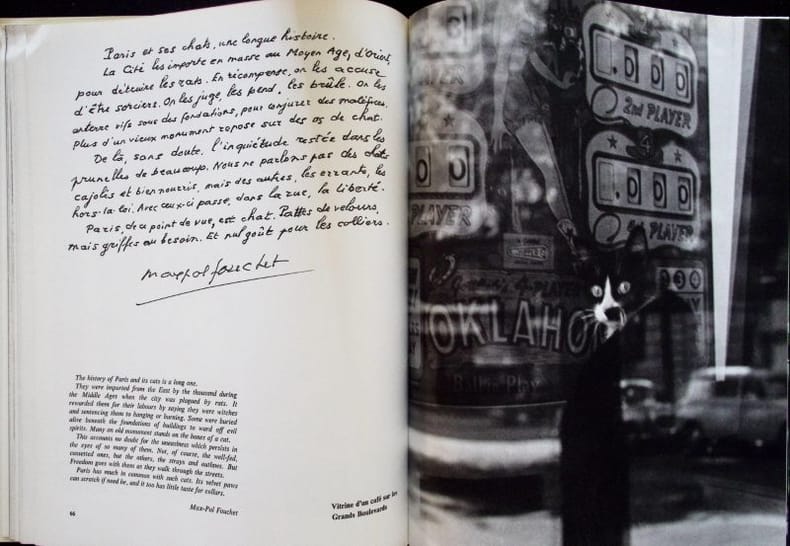 Paris et ses chats, une longue histoire.
La Cité les importe en masse au Moyen Age, d'Orient,
pour détruire les rats. En récompense, on les accuse
d'être sorciers. On les juge, les pend, les brûle. On les
enterre vifs sous des fondations, pour conjurer des maléfices.
Plus d'un vieux monument repose sur des os de chat.
De là, sans doute, l'inquiétude restée dans les
prunelles de beaucoup. Nous ne parlons pas des chats
cajolés et bien nourris, mais des autres, les errants, les
hors-la-loi. Avec ceux-ci passe, dans la rue, la liberté.
Paris, de ce point de vue, est chat. Pattes de velours,
mais griffes au besoin. Et nul goût pour les colliers.
Max-Pol Fouchet
The history of Paris and its cats is a long one.
They were imported from the East by the thousand during
the Middle Ages when the city was plagued by rats. It
rewarded them for their labours by saying they were witches
and sentencing them to hanging or burning. Some were buried
alive beneath the foundations of buildings to ward off evil
spirits. Many an old monument stands on the bones of a cat.
This accounts no doubt for the uneasiness which persists in
the eyes of so many of them. Not, of course, the well-fed,
cossetted ones, but the others, the strays and outlaws. But
Freedom goes with them as they walk through the streets.
Paris has much in common with such cats. Its velvet paws
can scratch if need be, and it too has little taste for collars.
Max-Pol Fouchet
66
Vitrine d'un café sur les
Grands Boulevards
000
2nd PLAYER
4
000
4th PLAYER
00
PLAYER
4-PLAYER
OKLAHO
Ball Play